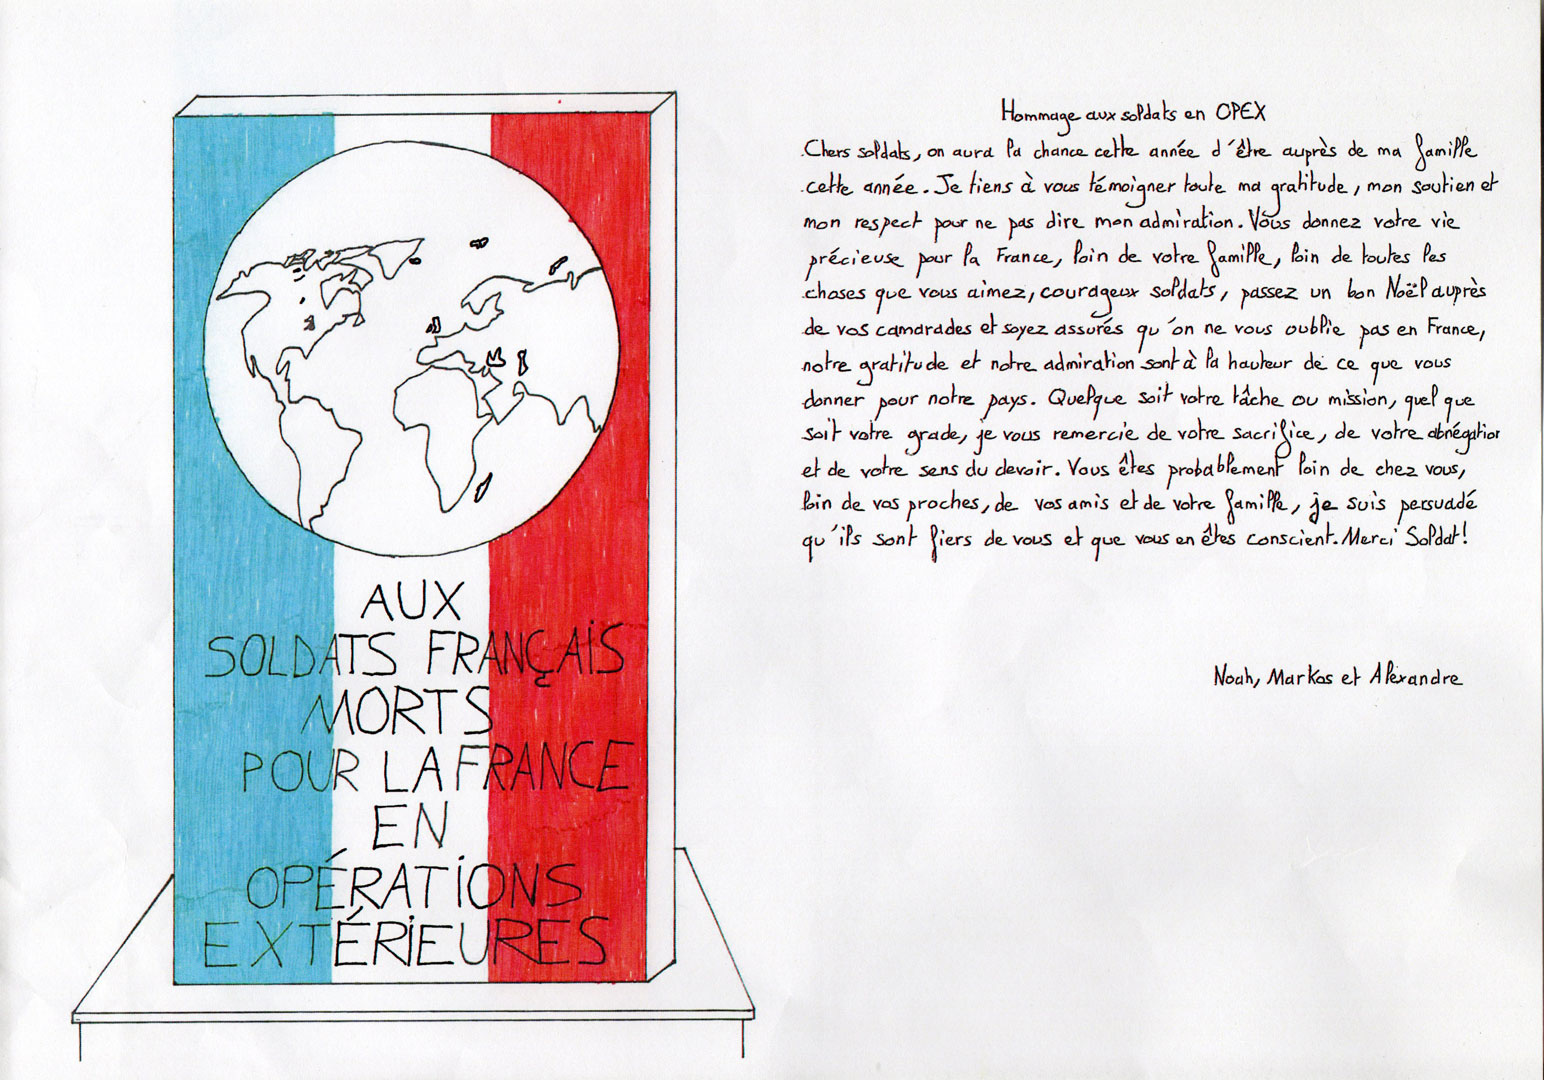 AUX
SOLDATS FRANÇAIS
MORTS
POUR LA FRANCE
EN
OPÉRATIONS
EXTÉRIEURES
Hommage aux soldats en OPEX
Chers soldats, on aura la chance cette année d'être auprès de ma famille
cette année. Je tiens à vous témoigner toute ma gratitude, mon soutien et
mon respect pour ne pas dire mon admiration. Vous donnez votre vie
précieuse pour la France, loin de votre famille, loin de toutes les
choses que vous aimez, courageux soldats, passez un bon Noël auprès
de vos camarades et soyez assurés qu'on ne vous oublie pas en France,
notre gratitude et notre admiration sont à la hauteur de ce que vous
donner pour notre pays. Quelque soit votre tâche ou mission, quel que
soit votre grade, je vous remercie de votre sacrifice, de votre abnégation
et de votre sens du devoir. Vous êtes probablement loin de chez vous,
loin de vos proches, de vos amis et de votre famille, je suis persuadé
qu'ils sont fiers de vous et que vous en êtes conscient. Merci Soldat!
Noah, Markos et Alexandre